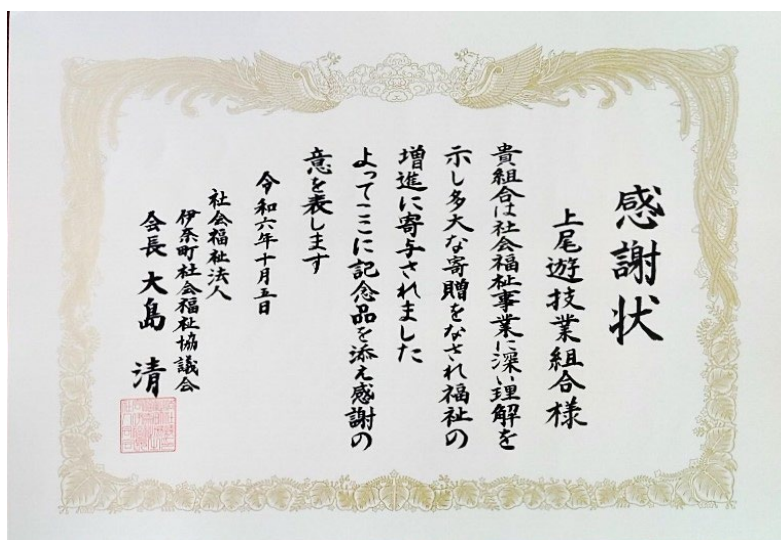 感謝状
上尾遊技業組合様
貴組合は社会福祉事業に深い理解を
示し多大な寄贈をなされ福祉の
増進に寄与されました
よってここに記念品を添え感謝の
意を表します
令和六年十月五日
社会福祉法人
伊奈町社会福祉協議会
会長 大島 清